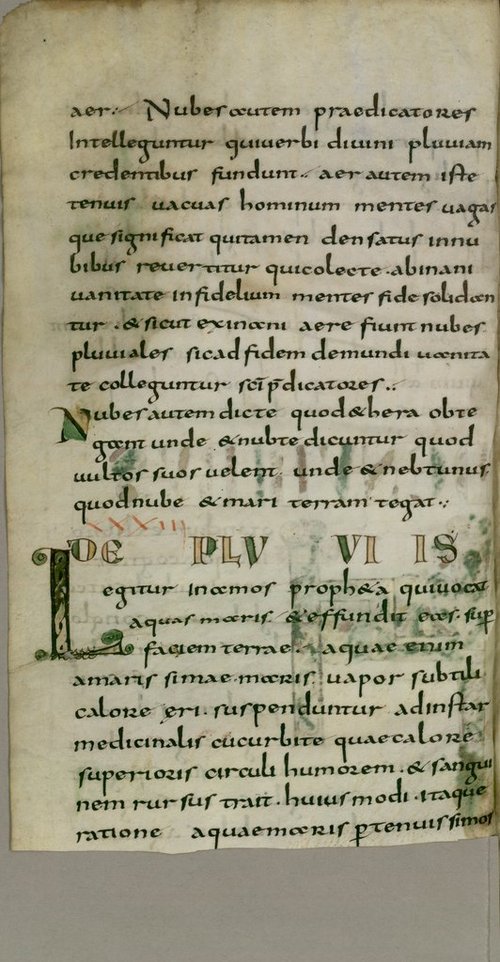 aer. Nubes autem praedicatores
Intelleguntur quiverbi divini pluviam
credentibus fundunt. aer autem iste
tenuis vacuas hominum mentes vagas
que significat qui tamen densatus innu
bibus revertitur qui colecte. ab inani
vanitate infidelium mentes fide solidan
tur. & sicut ex inani aere fiunt nubes
pluviales sic ad fidem de mundi vanita
te colleguntur sc̄i p̄dicatores.
Nubes autem dicte quod &hera obte
gant unde & nubte dicuntur quod
vultos suos velent. unde & nebtunus
quod nube & mari terram tegat.
XXXIII
DE PLUVIIS
Legitur In amos proph&a qui vocat
aquas maris & effundit eas. sup̄
faciem terrae. aquae enim
amarissimae maris. vapor subtili
calore eri. suspenduntur ad instar
medicinalis cucurbite quae calore
superioris circuli humorem. & sangui
nem rursus trait. huiusmodi. itaque
ratione aquae maris p̱ tenuissimos